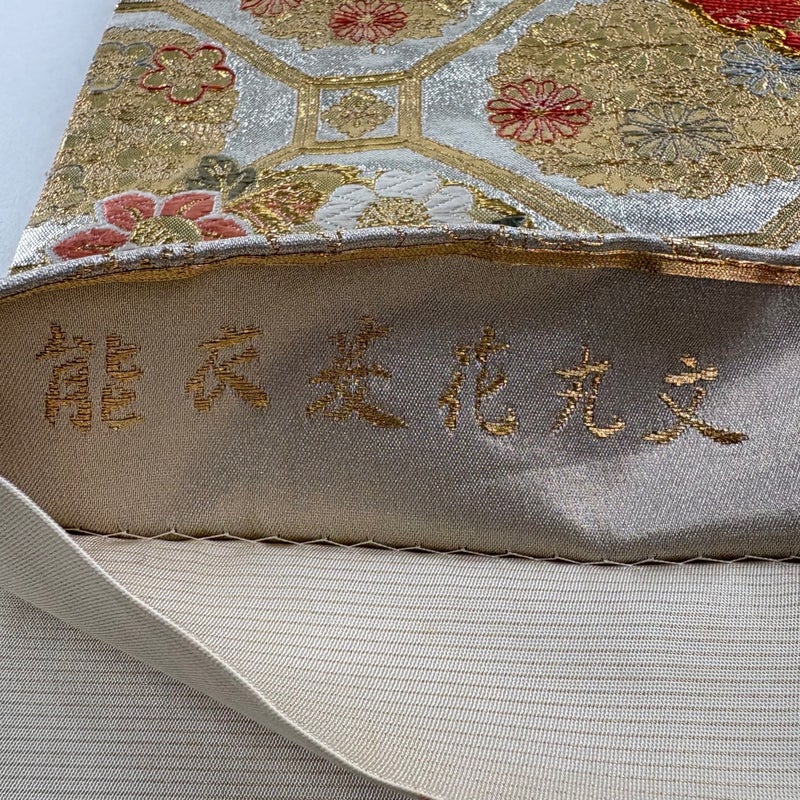 能衣菱花丸文